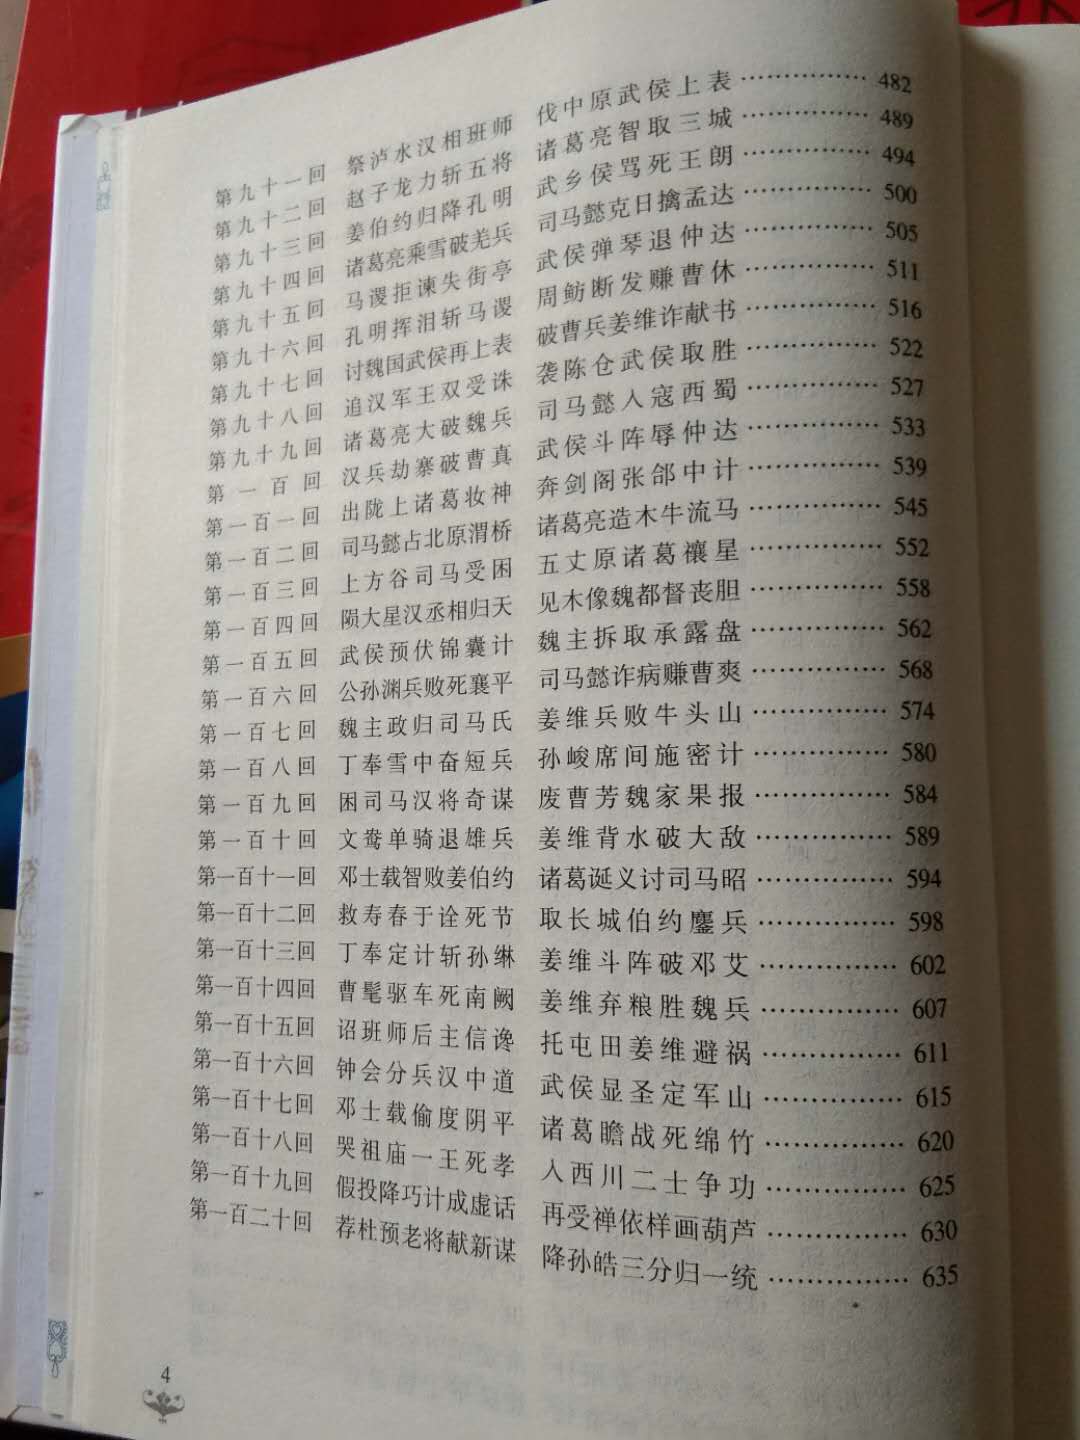 第九十一回 祭泸水汉相班师 伐中原武侯上表 ················ 482
第九十二回 赵子龙力斩五将 诸葛亮智取三城 ················ 489
第九十三回 姜伯约归降孔明 武乡侯骂死王朗 ················ 494
第九十四回 诸葛亮乘雪破羌兵 司马懿克日擒孟达 ················ 500
第九十五回 马谡拒谏失街亭 武侯弹琴退仲达 ················ 505
第九十六回 孔明挥泪斩马谡 周鲂断发赚曹休 ················ 511
第九十七回 讨魏国武侯再上表 破曹兵姜维诈献书 ················ 516
第九十八回 追汉军王双受诛 袭陈仓武侯取胜 ················ 522
第九十九回 诸葛亮大破魏兵 司马懿入寇西蜀 ················ 527
第一百回 汉兵劫寨破曹真 武侯斗阵辱仲达 ················ 533
第一百一回 出陇上诸葛妆神 奔剑阁张郃中计 ················ 539
第一百二回 司马懿占北原渭桥 诸葛亮造木牛流马 ················ 545
第一百三回 上方谷司马受困 五丈原诸葛禳星 ················ 552
第一百四回 陨大星汉丞相归天 见木像魏都督丧胆 ················ 558
第一百五回 武侯预伏锦囊计 魏主拆取承露盘 ················ 562
第一百六回 公孙渊兵败死襄平 司马懿诈病赚曹爽 ················ 568
第一百七回 魏主政归司马氏 姜维兵败牛头山 ················ 574
第一百八回 丁奉雪中奋短兵 孙峻席间施密计 ················ 580
第一百九回 困司马汉将奇谋 废曹芳魏家果报 ················ 584
第一百十回 文鸯单骑退雄兵 姜维背水破大敌 ················ 589
第一百十一回 邓士载智败姜伯约 诸葛诞义讨司马昭 ················ 594
第一百十二回 救寿春于诠死节 取长城伯约鏖兵 ················ 598
第一百十三回 丁奉定计斩孙綝 姜维斗阵破邓艾 ················ 602
第一百十四回 曹髦驱车死南阙 姜维弃粮胜魏兵 ················ 607
第一百十五回 诏班师后主信谗 托屯田姜维避祸 ················ 611
第一百十六回 钟会分兵汉中道 武侯显圣定军山 ················ 615
第一百十七回 邓士载偷度阴平 诸葛瞻战死绵竹 ················ 620
第一百十八回 哭祖庙一王死孝 入西川二士争功 ················ 625
第一百十九回 假投降巧计成虚话 再受禅依样画葫芦 ················ 630
第一百二十回 荐杜预老将献新谋 降孙皓三分归一统 ················ 635
4